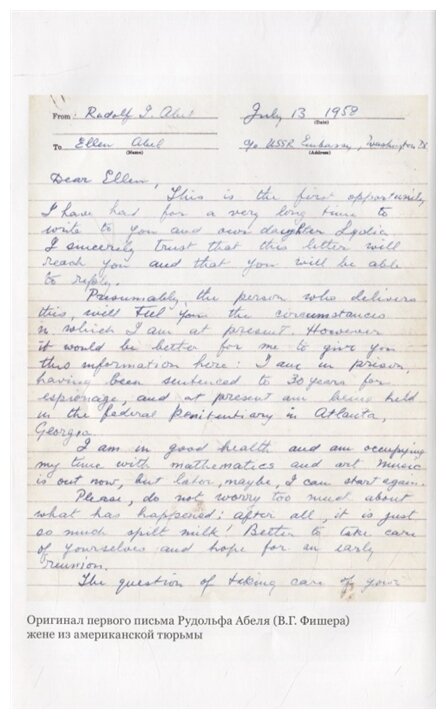 From: Rudolf I. Abel July 13 1958
(Date)
To Ellen Abel c/o USSR Embassy, Washington DC
(Name) (Address)
Dear Ellen,
This is the first opportunity
I have had for a very long time to
write to you and our daughter Lydia.
I sincerely trust that this letter will
reach you and that you will be able
to reply.
Presumably, the person who delivers
this, will tell you the circumstances
in which I am at present. However
it would be better for me to give you
this information here: I am in prison,
having been sentenced to 30 years for
espionage, and at present am being held
in the federal Penitentiary in Atlanta,
Georgia.
I am in good health and am occupying
my time with mathematics and art. Music
is out now, but later, maybe, I can start again.
Please, do not worry too much about
what has happened: after all, it is just
so much spilt milk! Better to take care
of yourselves and hope for an early
reunion.
The question of taking care of your
Оригинал первого письма Рудольфа Абеля (В.Г. Фишера)
жене из американской тюрьмы